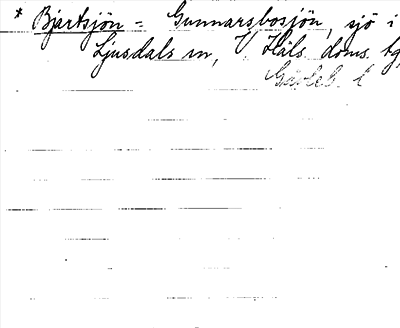 * Bjärtsjön = Gunnarsbosjön, sjö i
Ljusdals sn, V Häls. doms. tg,
Gävleb. l